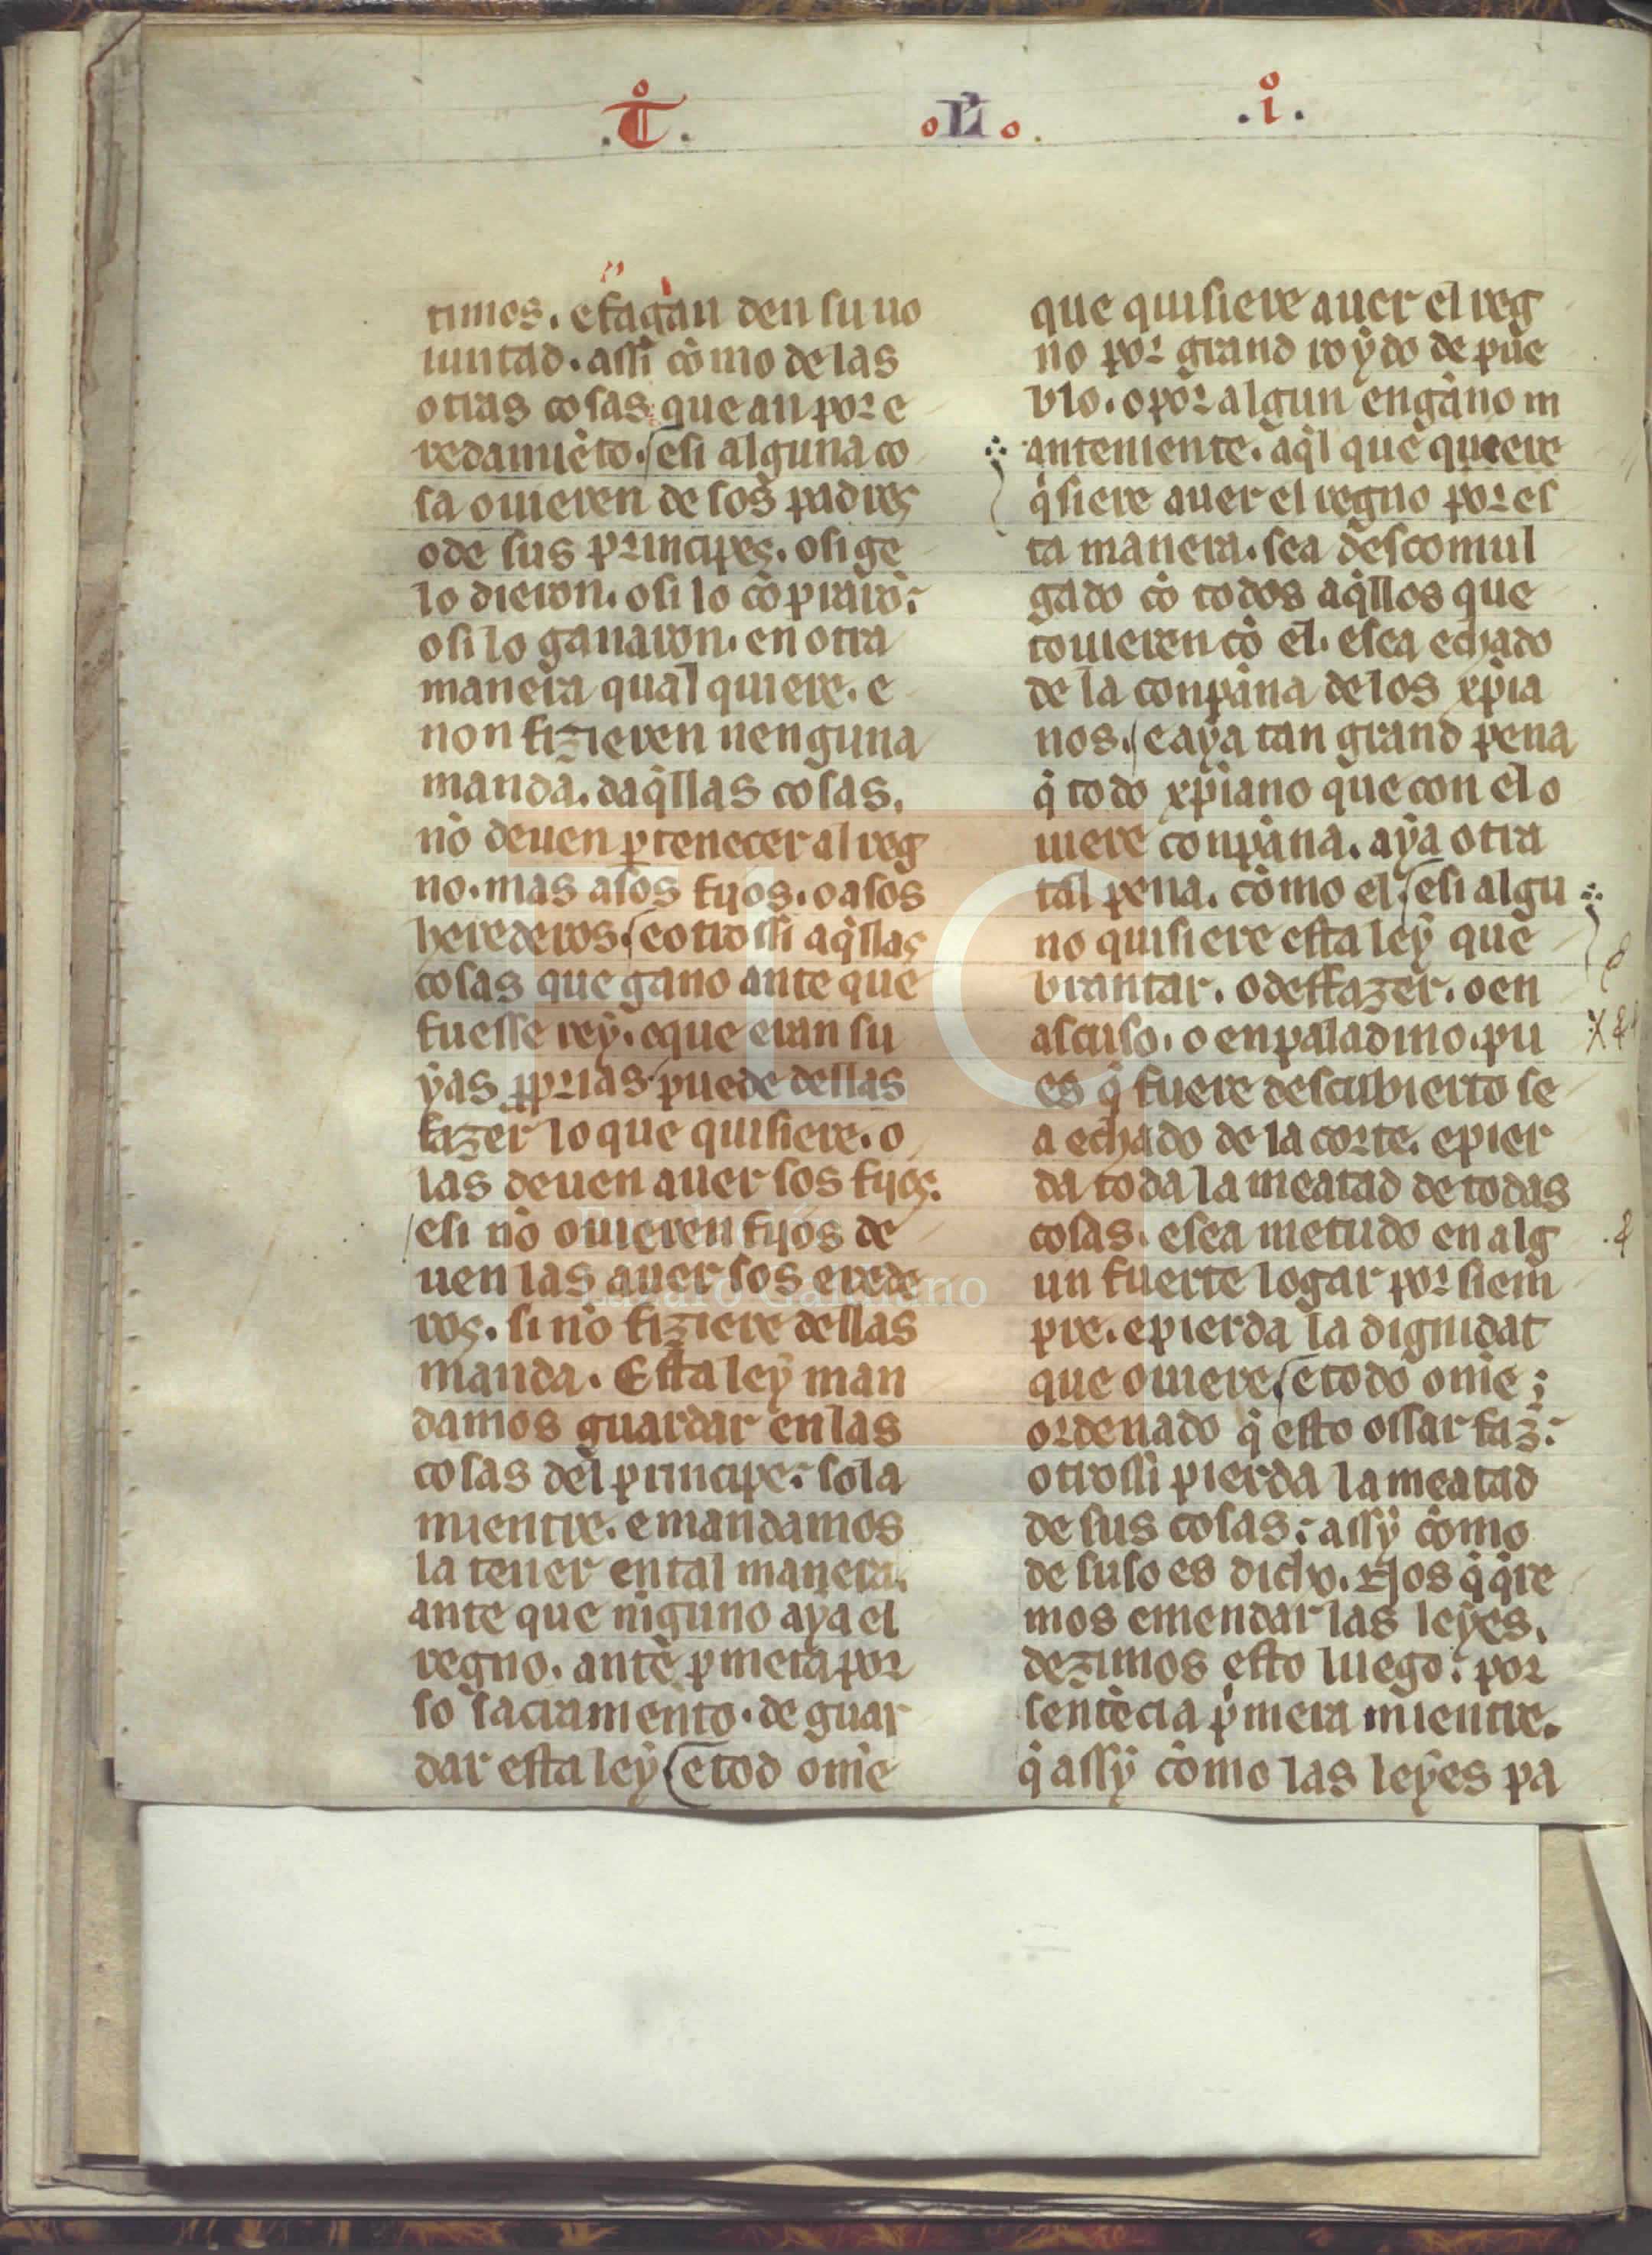 .T̊. .L. .i̊.
timos. e fagan den su uo
luntad. assi como de las
otras cosas que an por e
redamiẽto. e si alguna co
sa ouieren de sos padres
o de sus principes. o si ge
lo dieron. o si lo cõpraro.
o si lo ganaron. en otra
manera qual quiere. e
non fizieren nenguna
manda. daq̃llas cosas.
nõ deuen ꝑtenecer al reg
no. mas a sos fijos. o a sos
herederos. e otro ssi aq̃llas
cosas que gano ante que
fuesse rey. e que eran su
yas ꝓprias puede dellas
fazer lo que quisiere. o
las deuen auer sos fijos.
e si nõ ouieren fijos de
uen las auer sos erede
ros. si nõ fiziere dellas
manda. Esta ley man
damos guardar en las
cosas del principe. sola
mientre. e mandamos
la tener en tal manera.
ante que niguno aya el
regno. ante ꝑmeta por
so sacramento. de guar
dar esta ley e tod ome
que quisiere auer el reg
no por grand roydo de pue
blo. o por algun engano m
anteniente. aq̃l que queere
q̃siere auer el regno por es
ta manera. sea descomul
gado cõ todos aq̃llos que
touieren cõ el. e sea echado
de la conpana de los xp̃ia
nos. e aya tan grand pena
q̃ todo xp̃iano que con el o
uiere conpana. aya otra
tal pena. como el e si algu
no quisiere esta ley que
brantar. o desfazer. o en
ascuso. o en paladino. pu
es q̃ fuere descubierto se
a echado de la corte. e pier
da toda la meatad de todas
cosas. e sea metudo en alg
un fuerte logar por siem
pre. e pierda la dignidat
que ouiere e todo ome
ordenado q̃ esto ossar faz.
otrossi pierda la meatad
de sus cosas. assy como
de suso es dicho. Nos q̃ q̃re
mos emendar las leyes.
dezimos esto luego. por
sentẽcia p̃mera mientre.
q̃ assy como las leyes pa
FLC
Lázaro Galdiano